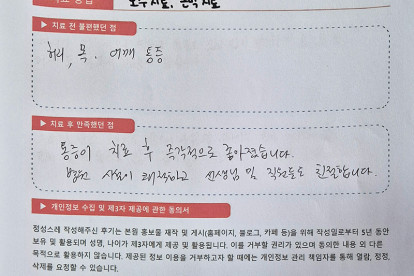 도수치료, 근막치료
▶ 치료 전 불편했던 점
허리, 목, 어깨 통증
▶ 치료 후 만족했던 점
통증이 치료 후 즉각적으로 좋아졌습니다.
병원 시설이 쾌적하고 선생님 및 직원들도 친절합니다.
▶ 개인정보 수집 및 제3자 제공에 관한 동의서
정성스레 작성해주신 후기는 본원 홍보물 제작 및 게시(홈페이지, 블로그, 카페 등)을 위해 작성일로부터 5년 동안
보유 및 활용되며 성명, 나이가 제3자에게 제공 및 활용됩니다. 이를 거부할 권리가 있으며 동의한 내용 외 다른
목적으로 활용하지 않습니다. 제공된 정보 이용을 거부하고자 할 때에는 개인정보 관리 책임자를 통해 열람, 정정,
삭제를 요청할 수 있습니다.